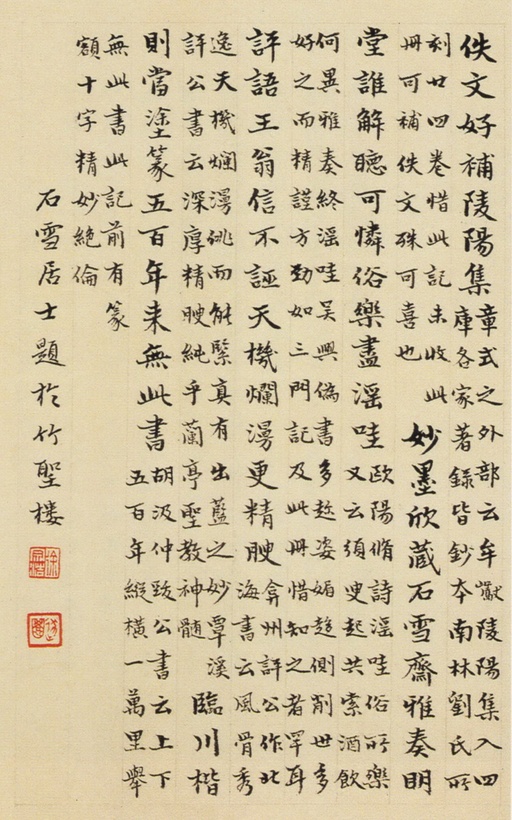 佚文好補陵陽集
章式之外部云牟巘陵陽集入四
庫各家著錄皆鈔本南林劉氏所
刻廿四卷惜此記未收此
冊可補佚文殊可喜也
妙墨欣藏石雪齋雅奏明
堂誰解聽可憐俗樂盡淫哇
歐陽脩詩淫哇俗所樂
又云須臾起共索酒飲
何異雅奏終淫哇吳興偽書多趁姿媚趨側削世多
好之而精謹方勁如三門記及此冊惜知之者罕耳
評語王翁信不誣天機爛漫更精腴
弇州評公作北
海書云風骨秀
逸天機爛漫佻而能緊真有出藍之妙覃溪
評公書云深厚精腴純乎蘭亭聖教神髓
臨川楷
則當塗篆五百年來無此書
胡汲仲致公書云上下
五百年縱橫一萬里舉
無此書此記前有篆
額十字精妙絕倫
石雪居士題於竹聖樓